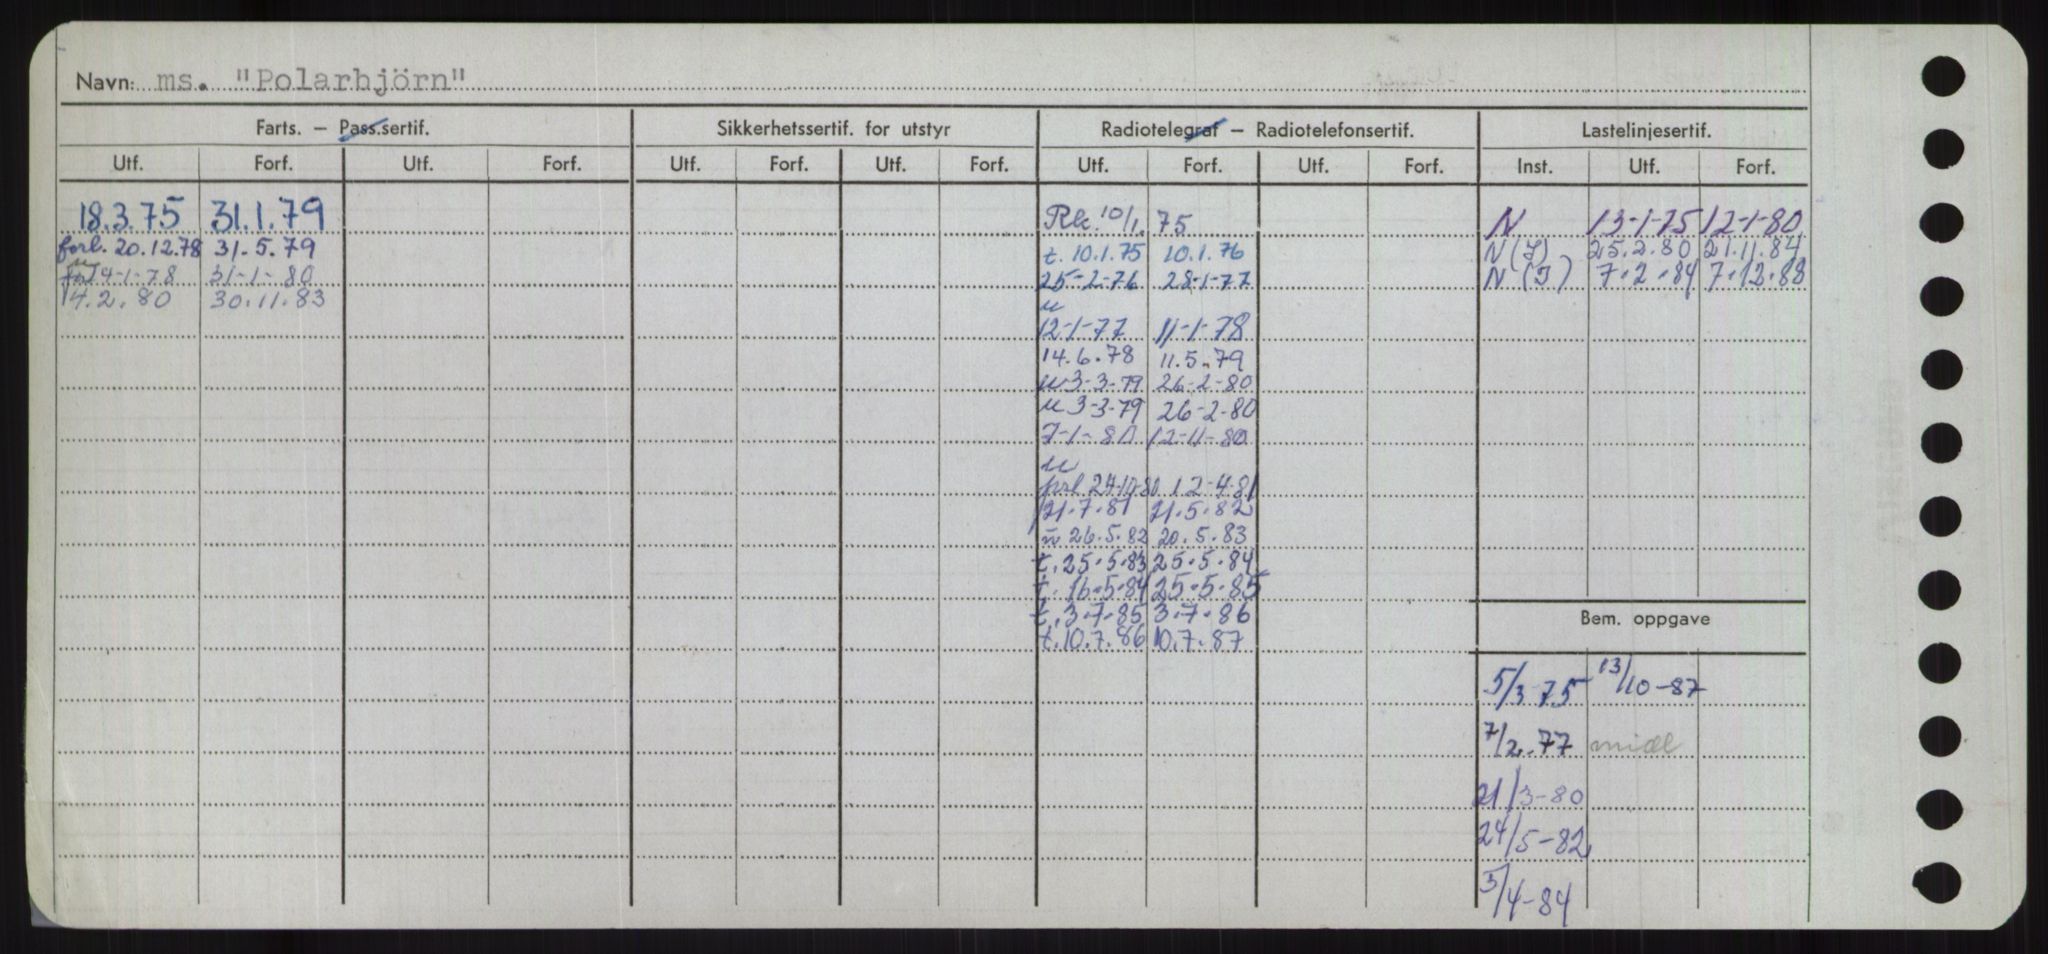 Navn: ms. "Polarbjörn"
Farts. – Pass.sertif. Sikkerhetssertif. for utstyr Radiotelegraf – Radiotelefonsertif. Lastelinjesertif.
Utf. Forf. Utf. Forf. Utf. Forf. Utf. Forf. Utf. Forf. Utf. Forf. Inst. Utf. Forf.
18.3.75 31.1.79
forl. 20.12.78 31.5.79
4-1-78 31-1-80
14.2.80 30.11.83
10/1.75
t. 10.1.75 10.1.76
25-2-76 28-1-77
u
12-1-77 11-1-78
14.6.78 11.5.79
u 3-3-79 26-2-80
u 3-3-79 26-2-80
7-1-80 12-11-80
u
forl 24-10-80 12-4-81
21.7.81 21.5.82
u 26.5.82 20.5.83
t. 25.5.83 25.5.84
t. 16.5.84 25.5.85
t. 3.7.85 3.7.86
t. 10.7.86 10.7.87
N 13-1-75 12-1-80
N (I) 25.2.80 21.11.84
N (I) 7.2.84 7.12.88
Bem. oppgave
5/3-75 13/10-87
7/2.77
21/3-80
24/5-82
3/4-84